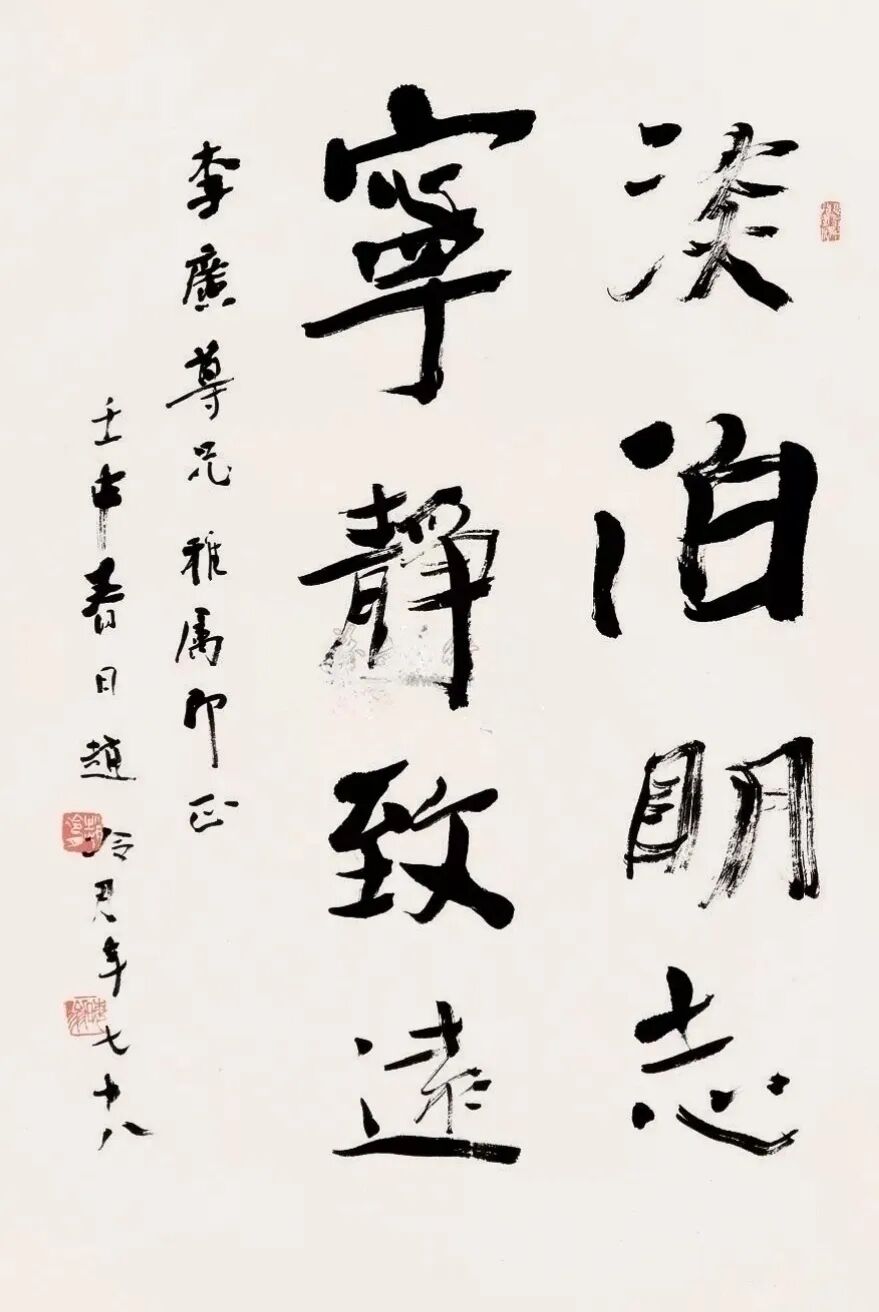 淡泊明志
寧靜致遠
李廣尊兄雅属即正
壬申春日趙冷月年七十八